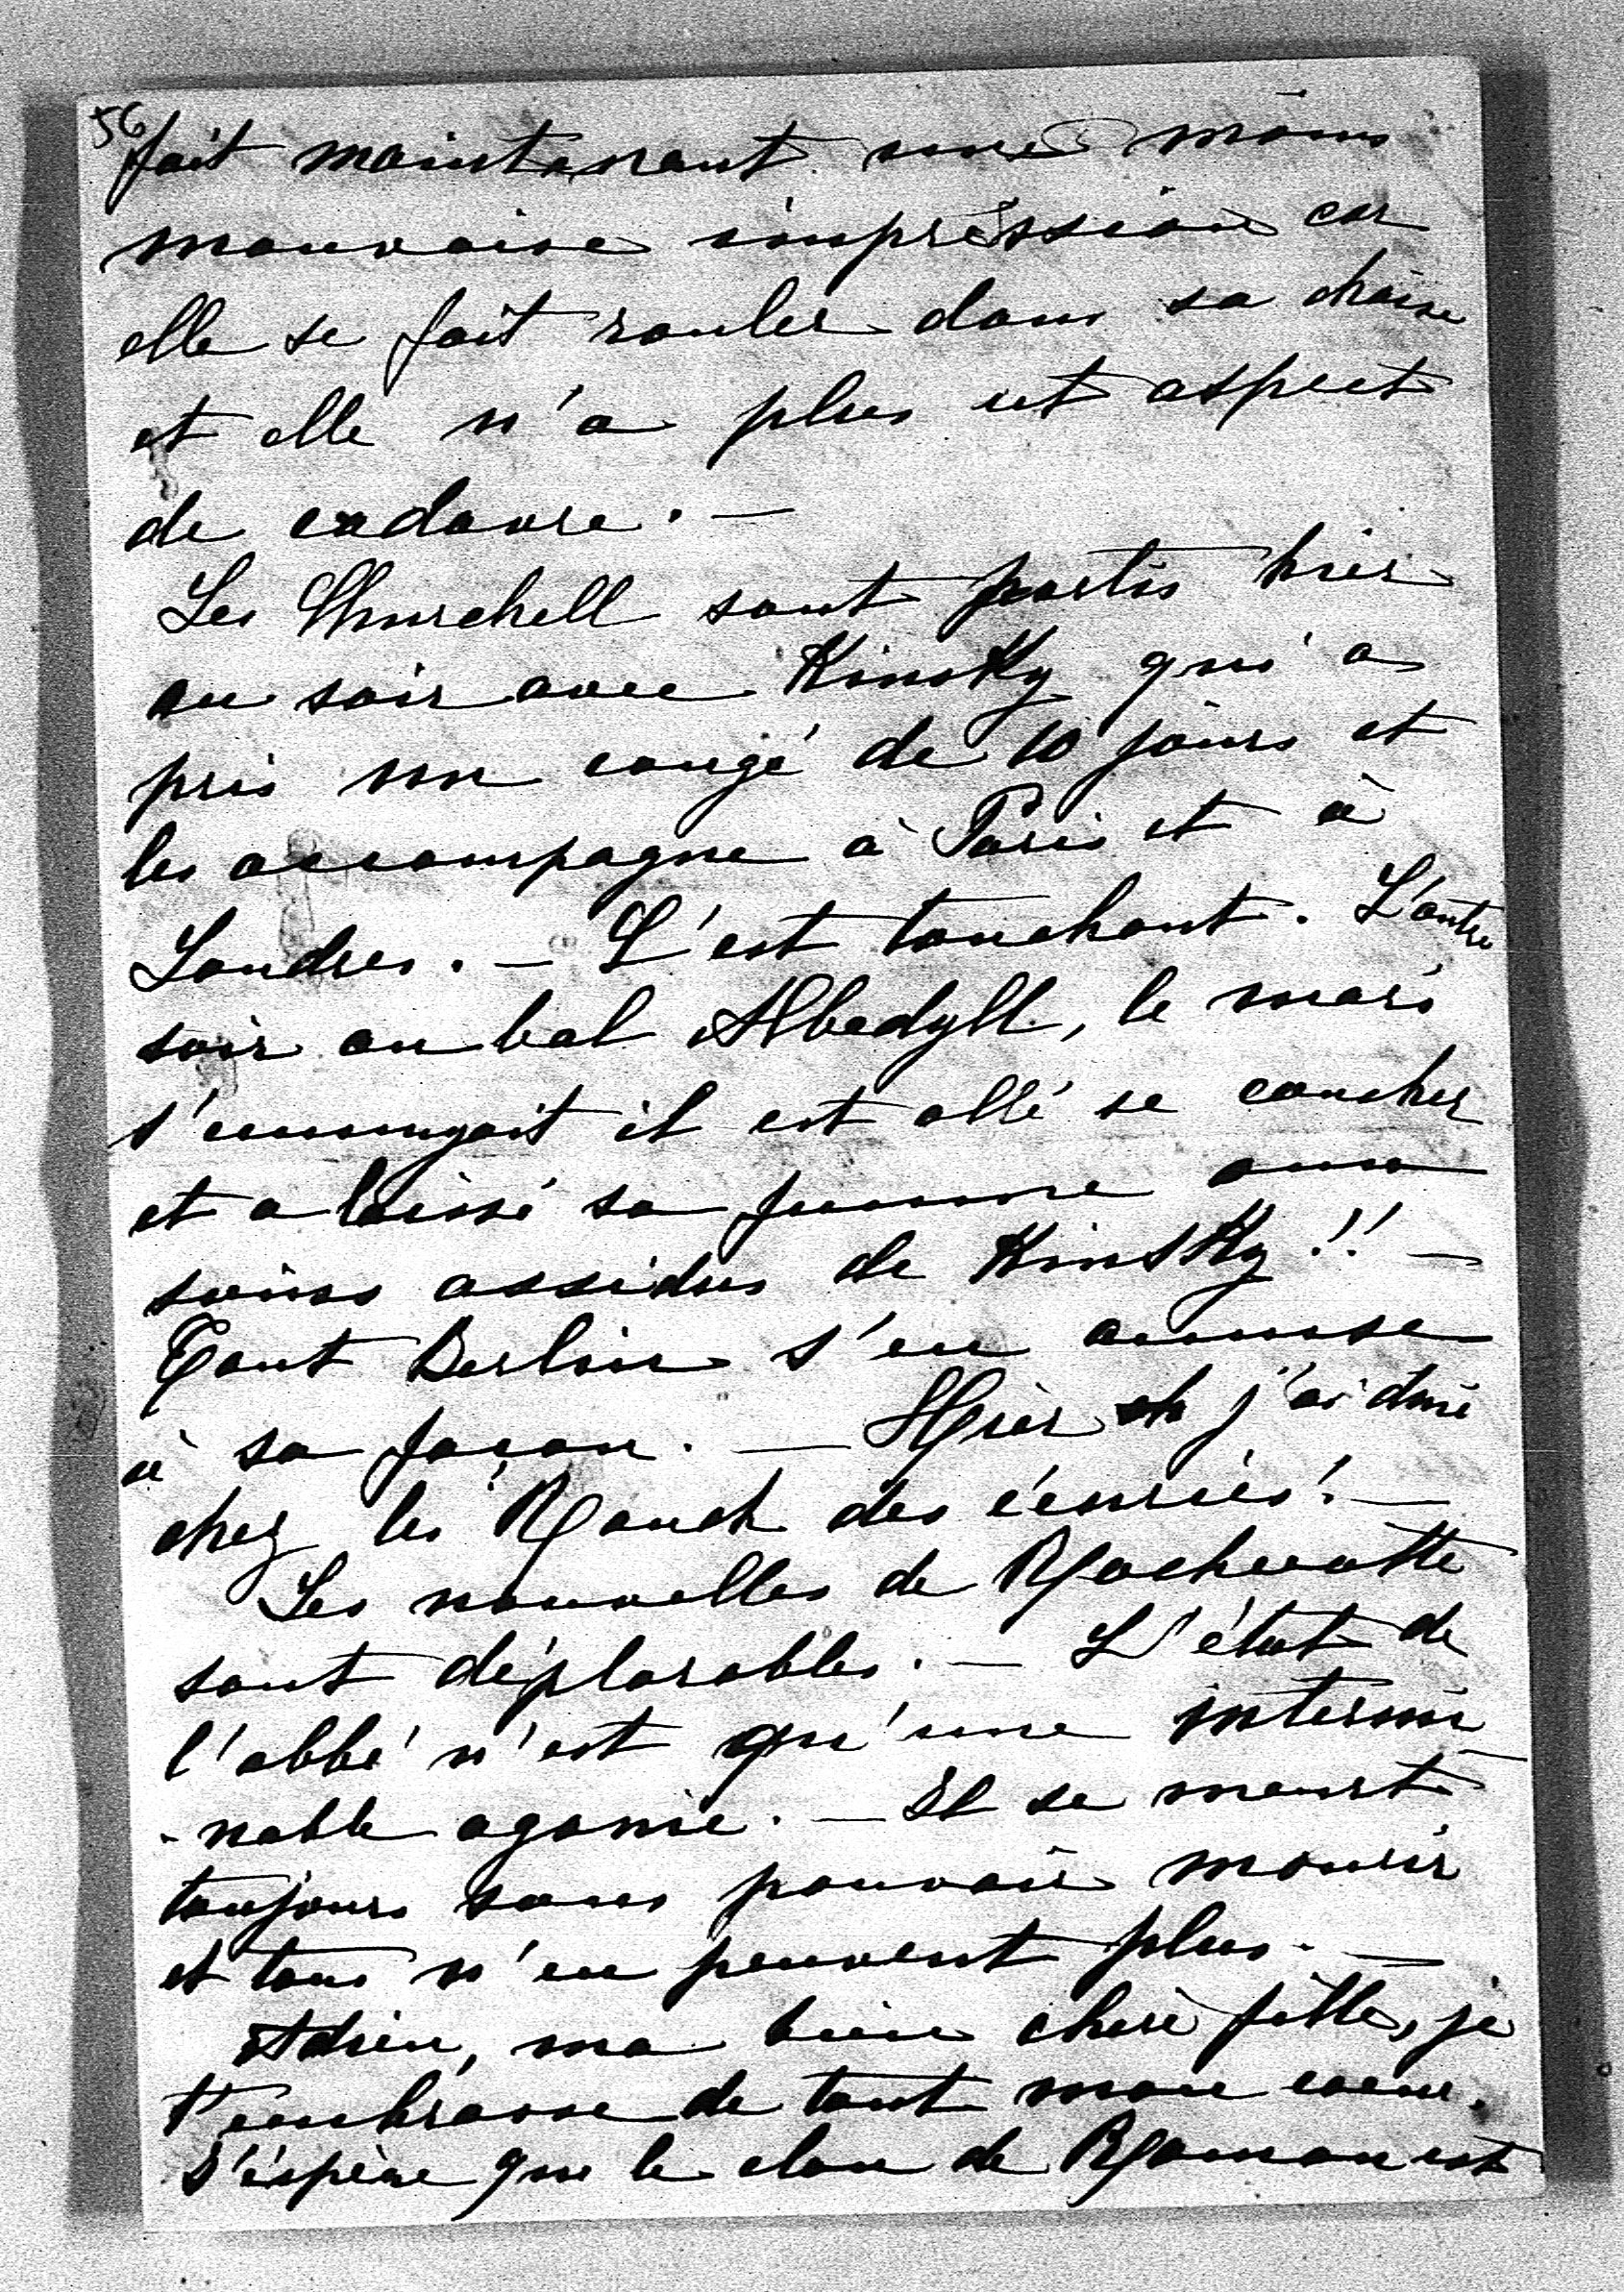 56
fait maintenant une moins
mauvaise impréssion car
elle se fait rouler dans sa chaise
et elle n'a plus cet aspect
de cadavre. —
Les Churchell sont partis hier
au soir avec Kinsky qui a
pris un congé de 10 jours et
les accompagne à Paris et à
Londres. — C'est touchant. L'autre
soir au bal Albedyll, le mari
s'ennuyait il est allé se coucher
et a laissé sa femme aux
soins assidus de Kinsky!! —
Tout Berlin s'en amuse
à sa façon. — Hier j'ai diné
chez les Rauch des écuries. —
Les nouvelles de Rochecotte
sont déplorables. — L'état de
l'abbé n'est qu'une intermi
-nable agonie. — Il se meurt
toujours sans pouvoir mourir
et tous n'en peuvent plus. —
Adieu, ma bien chère fille, je
t'embrasse de tout mon coeur.
J'éspère que le clou de Roman est